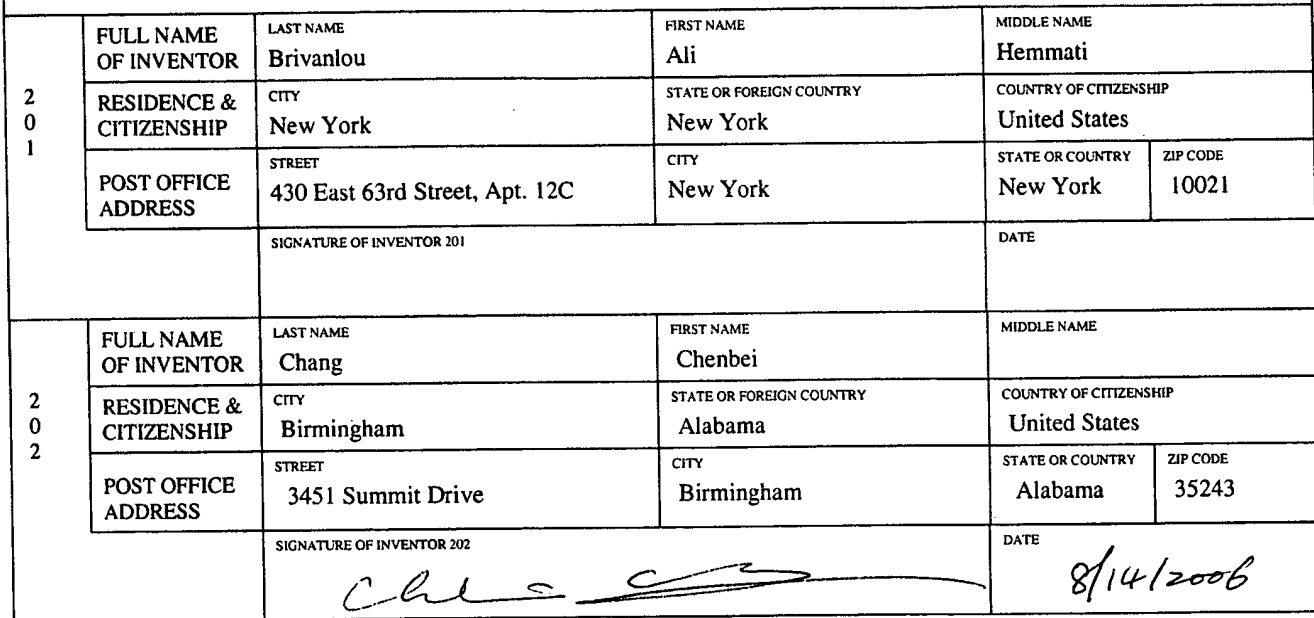 FULL NAME OF INVENTOR
LAST NAME
Brivanlou
FIRST NAME
Ali
MIDDLE NAME
Hemmati
201
RESIDENCE & CITIZENSHIP
CITY
New York
STATE OR FOREIGN COUNTRY
New York
COUNTRY OF CITIZENSHIP
United States
POST OFFICE ADDRESS
STREET
430 East 63rd Street, Apt. 12C
CITY
New York
STATE OR COUNTRY
New York
ZIP CODE
10021
SIGNATURE OF INVENTOR 201
DATE
FULL NAME OF INVENTOR
LAST NAME
Chang
FIRST NAME
Chenbei
MIDDLE NAME
202
RESIDENCE & CITIZENSHIP
CITY
Birmingham
STATE OR FOREIGN COUNTRY
Alabama
COUNTRY OF CITIZENSHIP
United States
POST OFFICE ADDRESS
STREET
3451 Summit Drive
CITY
Birmingham
STATE OR COUNTRY
Alabama
ZIP CODE
35243
SIGNATURE OF INVENTOR 202
DATE
8/14/2006